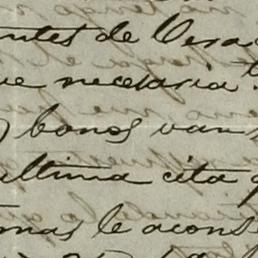 ntes de Vera
ue necesaria
bonos van
ultima cita q
mas le acons